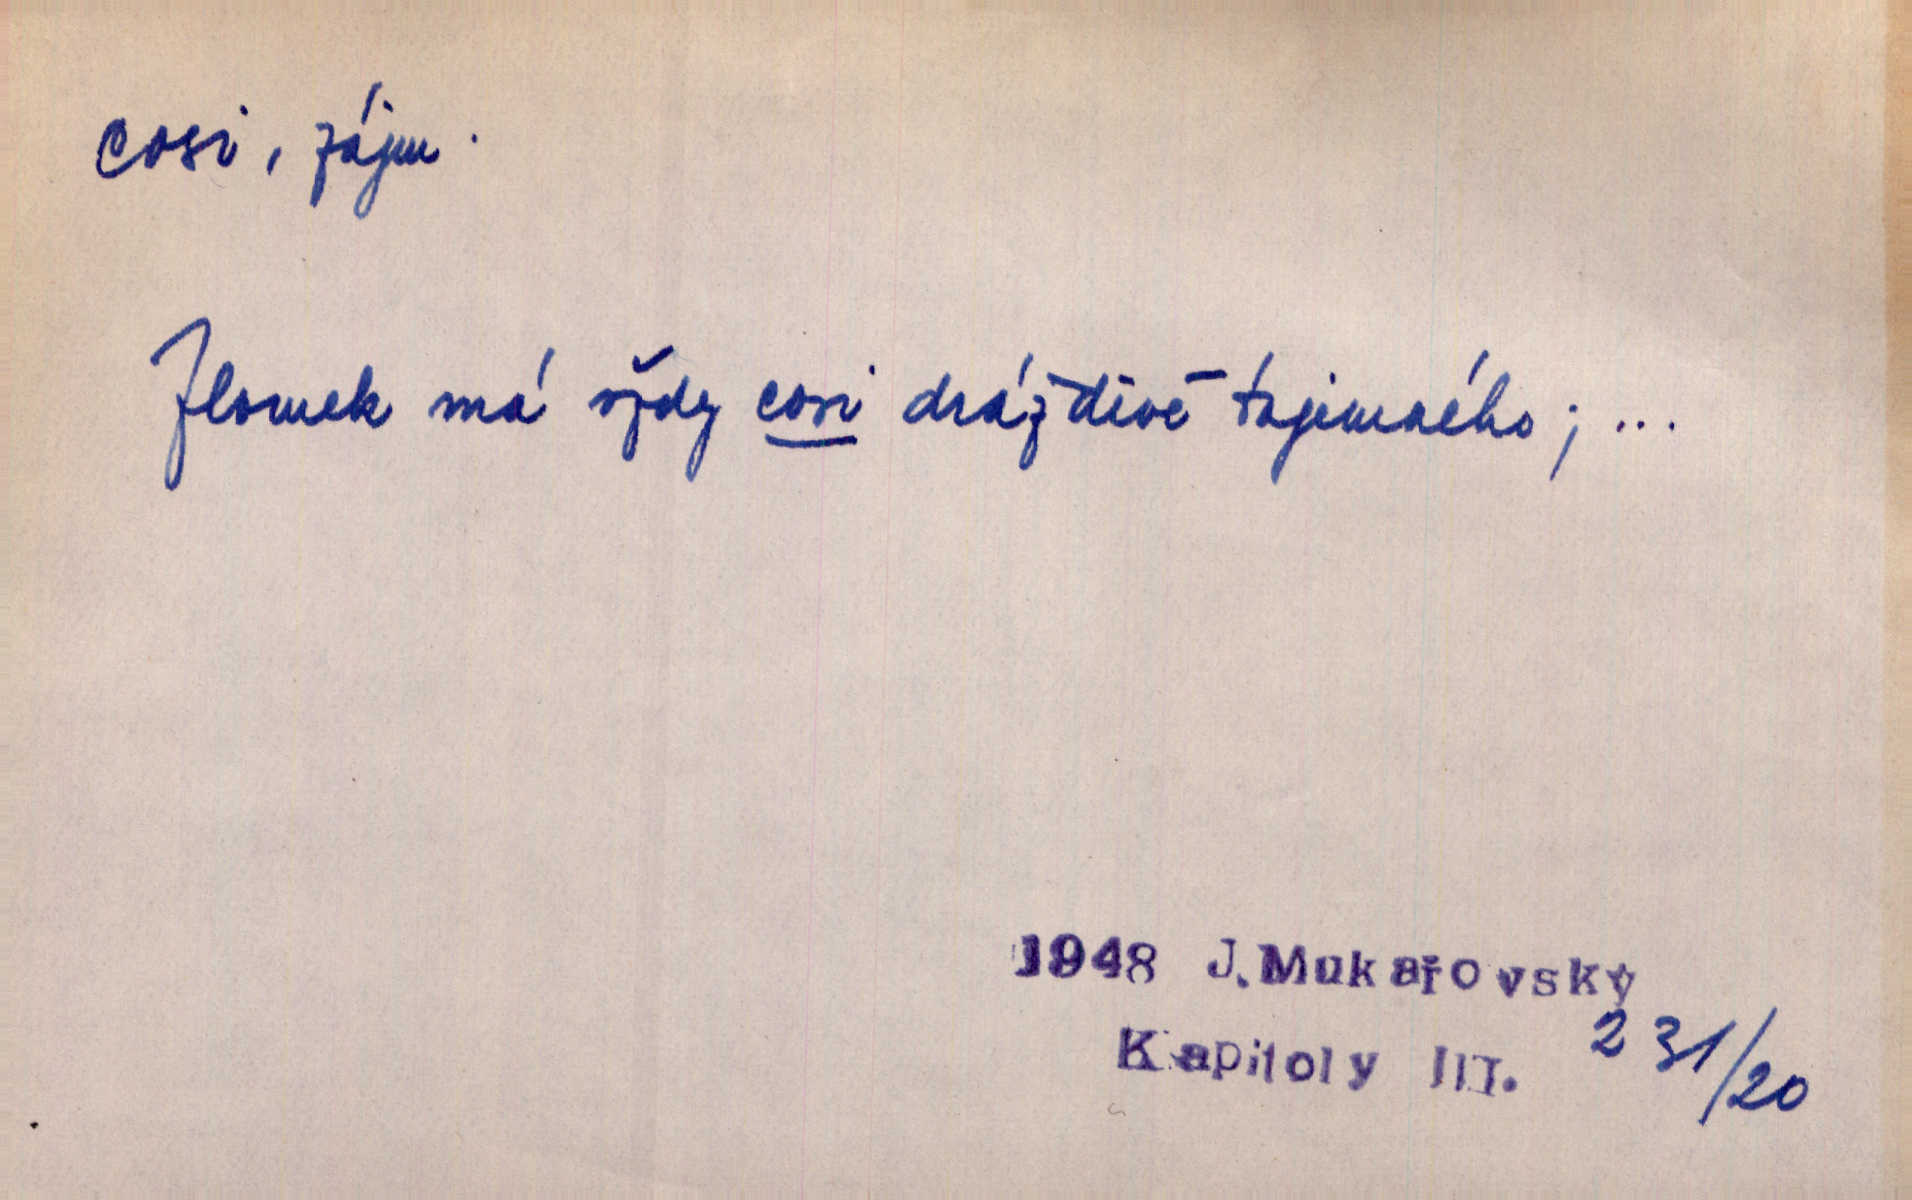 cosi, zájm.
Zlomek má vždy cosi dráždivě tajemného; ...
1948 J. Mukařovský
Kapitoly III. 231/20